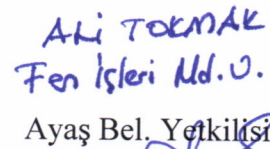 ALİ TOKMAK
Fen İşleri Md.V.
Ayaş Bel. Yetkilisi